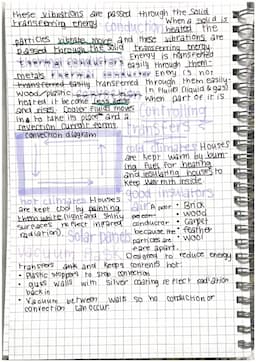 these vibrations are passed through the solid
transferring energy.
When a solid is
heated the
particles vibrate more and these vibrations are
passed through the solid transferring energy.
thermal conductors Energy is transferred
easily through them:
metals thermal conductor Energy is not
transferred easily transferred through them easily:
wood/plastic In fluids (liquid & gas)
heated it become less dense when part of it is
and rises. Cooler fluids moves
in to take its place and a
convection current forms
convection diagram
Controlling
transfers
cold climates Houses
are kept warm by burning
fuel for heating
and insulating houses to
keep warmth inside
hot climates Houses good insulators
are kept cool by painting
them white (light and shiny
surfaces reflect infrared
radiation).
air a poor
conductor
because the
particles are
far apart.
• Brick
• wood
• carpet
• feather
• wool
solar panel
Designed to reduce energy
transfers and keeps contents hot:
• plastic stoppers to stop convection
• glass walls with silver coating reflect radiation
back in
• Vacuum between walls so no conduction or
convection can occur.